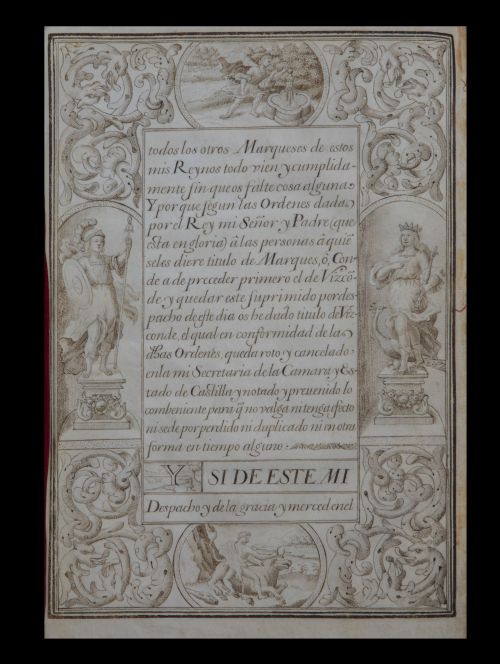 todos los otros Marqueses de estos
mis Reynos todo vien y cumplida-
mente sin que os falte cosa alguna.
Y porque segun las Ordenes dadas
por el Rey mi Señor y Padre (que
esta en gloria) â las personas â quiē
seles diere titulo de Marques, ô, Con-
de a de preceder primero el de Vizcō-
de y quedar este suprimido por des-
pacho de este dia os he dado titulo de Viz-
conde, el qual en conformidad de la y
dhas Ordenes, queda roto y cancelado
en la mi Secretaria de la Camara y Es-
tado de Castilla y notado y preuenido lo
combeniente para q̃ no valga ni tenga efecto
ni se de por perdido ni duplicado ni en otra
forma en tiempo alguno
Y SI DE ESTE MI
Despacho y de la gracia y merced en el